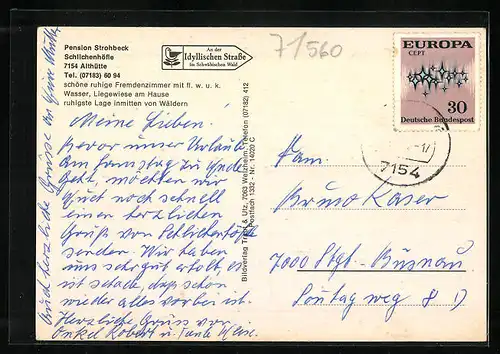 Pension Strohbeck
Schlichenhöfle
7154 Althütte
Tel. (07183) 60 94
schöne ruhige Fremdenzimmer mit fl. w. u. k.
Wasser, Liegewiese am Hause
ruhigste Lage inmitten von Wäldern
An der
Idyllischen Straße
im Schwäbischen Wald
71560
EUROPA
CEPT
30
Deutsche Bundespost
7154
Meine Lieben.
Bevor unser Urlaub
am Samstag zu Ende
geht, möchten wir
Euch noch schnell
einen herzlichen
Gruß von Schlichenhöfle
senden. Wir haben
uns sehr gut erholt, es
ist schade, daß schon
wieder alles vorbei ist.
Herzliche Grüsse von
Onkel Robert u. Tante
Auch herzliche Grüsse an
Bildverlag & Utz, 7063 Welzheim, Telefon (07182) 412
Postfach 1332 - Nr. 14020 C
Fam.
Bruno Kaser
7000 Stgt. - Büsnau
Sontagweg 8